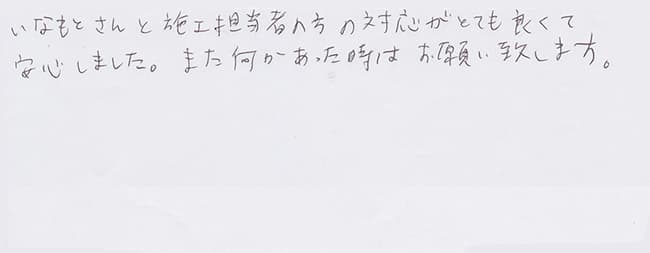 いなもとさんと施工担当者の方の対応がとても良くて
安心しました。また何かあった時は お願い致します。